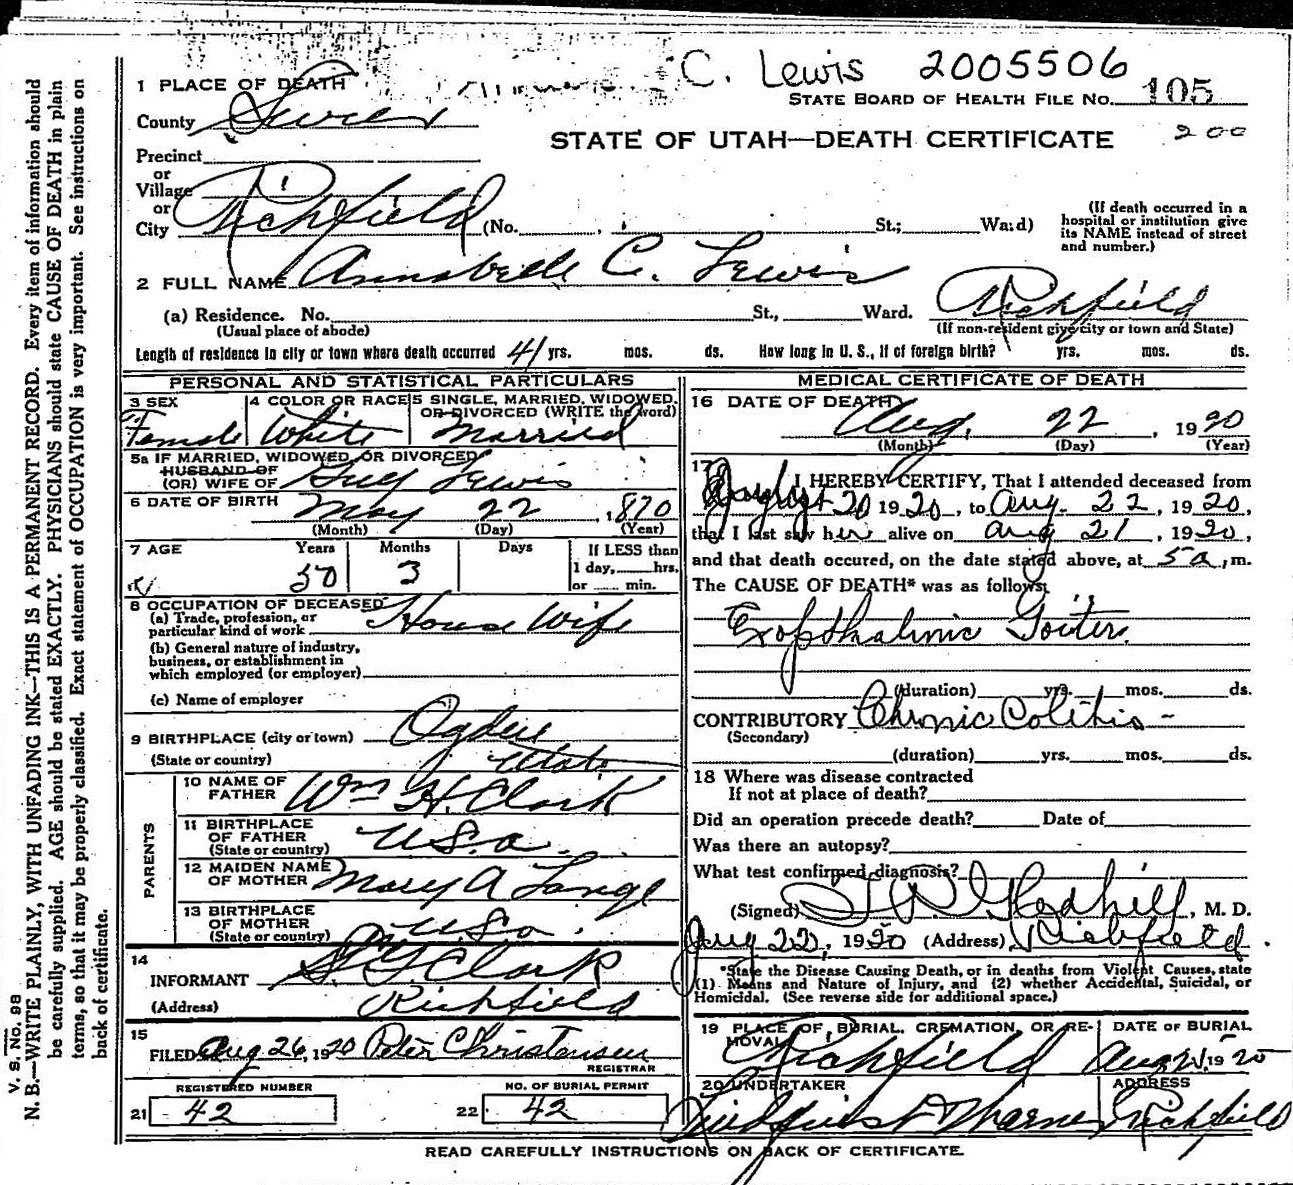 C. Lewis 2005506
1 PLACE OF DEATH
STATE BOARD OF HEALTH FILE No. 105
County Sevier
STATE OF UTAH—DEATH CERTIFICATE
200
Precinct
or
Village
or
City Richfield (No. St.; Ward)
(If death occurred in a
hospital or institution give
its NAME instead of street
and number.)
2 FULL NAME Annabelle C. Lewis
(a) Residence. No. St., Ward. Richfield
(Usual place of abode)
(If non-resident give city or town and State)
Length of residence in city or town where death occurred 41 yrs. mos. ds. How long in U. S., if of foreign birth? yrs. mos. ds.
PERSONAL AND STATISTICAL PARTICULARS
3 SEX
Female
4 COLOR OR RACE
White
5 SINGLE, MARRIED, WIDOWED,
OR DIVORCED (WRITE the word)
Married
5a IF MARRIED, WIDOWED, OR DIVORCED
HUSBAND OF
(OR) WIFE OF Guy Lewis
6 DATE OF BIRTH May 22, 1870
(Month) (Day) (Year)
7 AGE Years Months Days If LESS than
1 day, hrs.
or min.
50 3
8 OCCUPATION OF DECEASED
(a) Trade, profession, or
particular kind of work House Wife
(b) General nature of industry,
business, or establishment in
which employed (or employer)
(c) Name of employer
9 BIRTHPLACE (city or town) Ogden
(State or country) Utah
PARENTS
10 NAME OF
FATHER Wm H. Clark
11 BIRTHPLACE
OF FATHER
(State or country) U.S.a.
12 MAIDEN NAME
OF MOTHER Mary A
13 BIRTHPLACE
OF MOTHER
(State or country) U.S.a.
14
INFORMANT Clark
(Address) Richfield
15
FILED Aug 26, 1920 Peter Christensen
REGISTRAR
REGISTERED NUMBER
21 42
NO. OF BURIAL PERMIT
22 42
MEDICAL CERTIFICATE OF DEATH
16 DATE OF DEATH
Aug. 22, 1920
(Month) (Day) (Year)
17
I HEREBY CERTIFY, That I attended deceased from
20 1920, to Aug. 22, 1920,
that I last saw her alive on Aug 21, 1920,
and that death occured, on the date stated above, at 5 a, m.
The CAUSE OF DEATH* was as follows:
Exopthalmic Goiter.
(duration) yrs. mos. ds.
CONTRIBUTORY Chronic Colitis -
(Secondary)
(duration) yrs. mos. ds.
18 Where was disease contracted
If not at place of death?
Did an operation precede death? Date of
Was there an autopsy?
What test confirmed diagnosis?
(Signed) , M. D.
Aug 22, 1920 (Address) Richfield.
*State the Disease Causing Death, or in deaths from Violent Causes, state
(1) Means and Nature of Injury, and (2) whether Accidental, Suicidal, or
Homicidal. (See reverse side for additional space.)
19 PLACE OF BURIAL, CREMATION, OR RE-
MOVAL
Richfield
DATE OF BURIAL
Aug 1920
20 UNDERTAKER
ADDRESS
Richfield
READ CAREFULLY INSTRUCTIONS ON BACK OF CERTIFICATE.
V. S. No. 98
N. B.—WRITE PLAINLY, WITH UNFADING INK—THIS IS A PERMANENT RECORD. Every item of information should
be carefully supplied. AGE should be stated EXACTLY. PHYSICIANS should state CAUSE OF DEATH in plain
terms, so that it may be properly classified. Exact statement of OCCUPATION is very important. See instructions on
back of certificate.